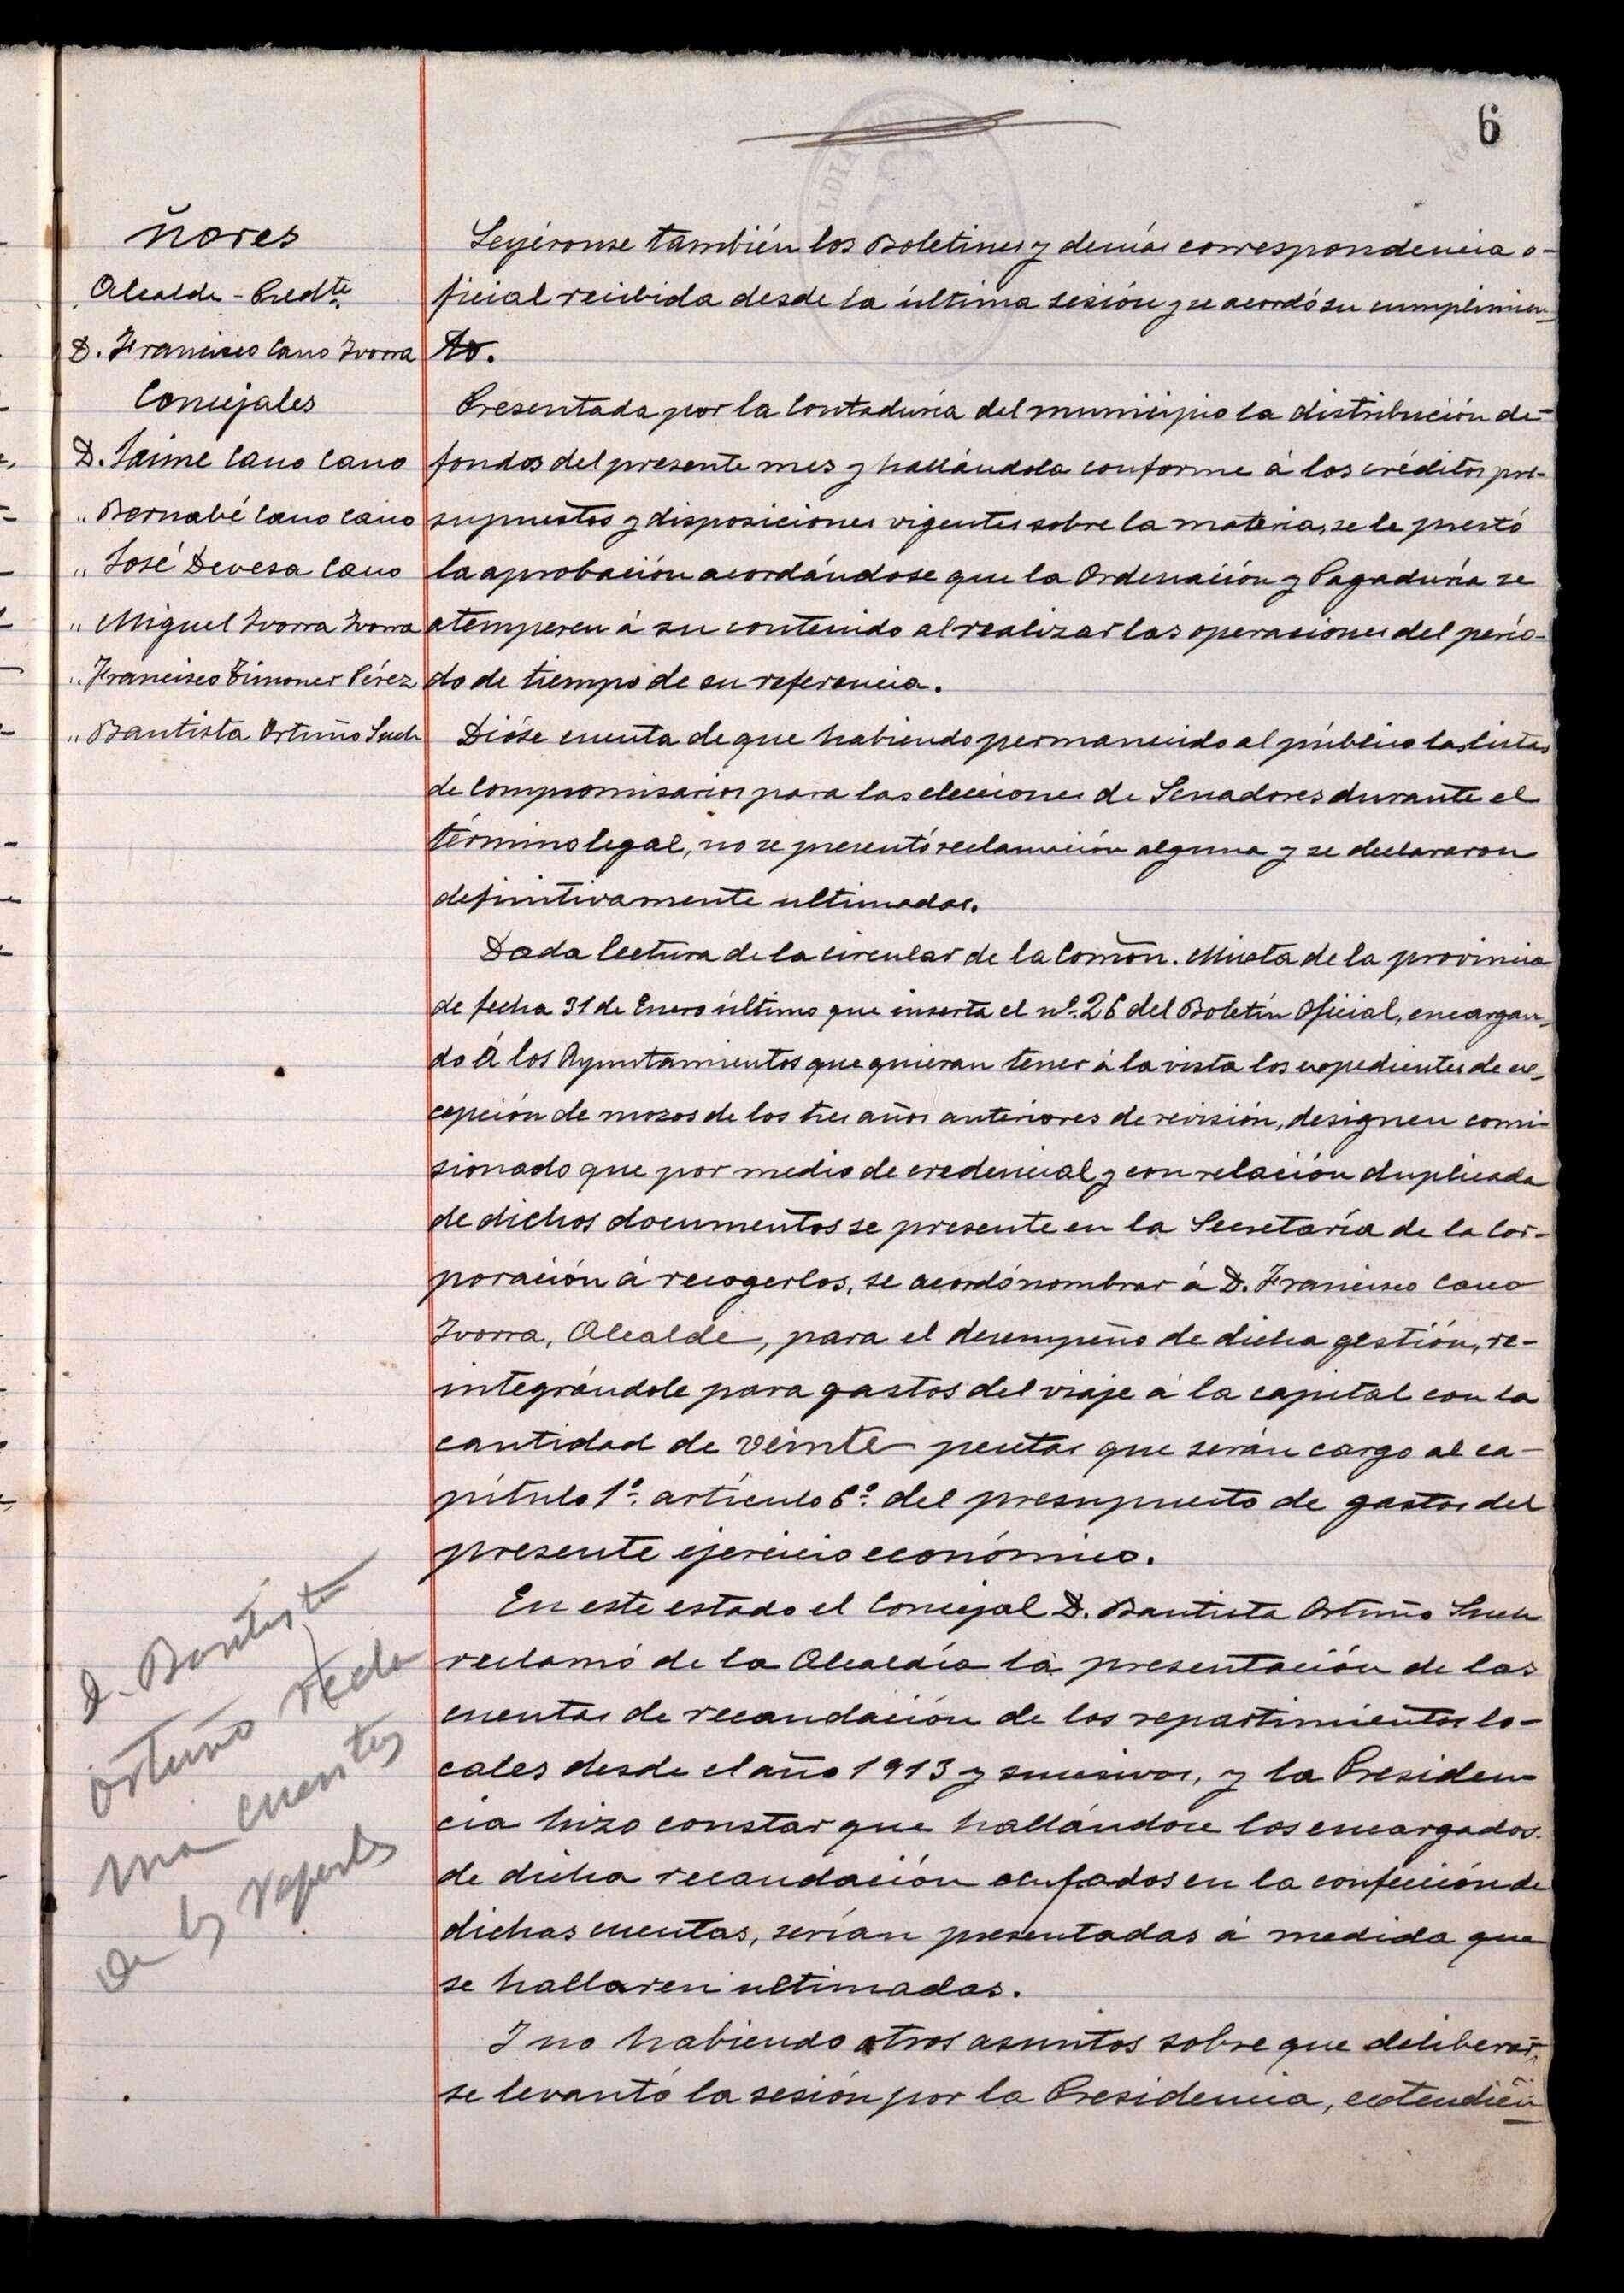 6
ñores
Alcalde-Predte.
D. Francisco Cano Ivorra
Concejales
D. Jaime Cano Cano
" Bernabé Cano Cano
" José Devesa Cano
" Miguel Ivorra Ivorra
" Francisco Timoner Pérez
" Bautista Ortuño Such
Leyéronse también los Boletines y demás correspondencia o-
ficial recibida desde la última sesión y se acordó su cumplimien-
to.
Presentada por la Contaduría del municipio la distribución de
fondos del presente mes y hallándola conforme á los créditos pre-
supuestos y disposiciones vigentes sobre la materia, se le prestó
la aprobación acordándose que la Ordenación y Pagaduría se
atemperen á su contenido al realizar las operaciones del perío-
do de tiempo de su referencia.
Dióse cuenta de que habiendo permanecido al público las listas
de Compromisarios para las elecciones de Senadores durante el
término legal, no se presentó reclamación alguna y se declararon
definitivamente ultimadas.
Dada lectura de la circular de la Comon. Mixta de la provincia
de fecha 31 de Enero último que inserta el nº. 26 del Boletín Oficial, encargan-
do á los Ayuntamientos que quieran tener á la vista los expedientes de ex-
cepción de mozos de los tres años anteriores de revisión, designen comi-
sionado que por medio de credencial y con relación duplicada
de dichos documentos se presente en la Secretaría de la Cor-
poración á recogerlos, se acordó nombrar á D. Francisco Cano
Ivorra, Alcalde, para el desempeño de dicha gestión, re-
integrándole para gastos del viaje á la capital con la
cantidad de veinte pesetas que serán cargo al ca-
pítulo 1º. artículo 6º. del presupuesto de gastos del
presente ejercicio económico.
En este estado el Concejal D. Bautista Ortuño Such
reclamó de la Alcaldía la presentación de las
cuentas de recaudación de los repartimientos lo-
cales desde el año 1913 y sucesivos, y la Presiden-
cia hizo constar que hallándose los encargados
de dicha recaudación ocupados en la confección de
dichas cuentas, serían presentadas á medida que
se hallaren ultimadas.
Y no habiendo otros asuntos sobre que deliberar,
se levantó la sesión por la Presidencia, extendién
D. Bautista
Ortuño recla
ma cuentas
de los repartos